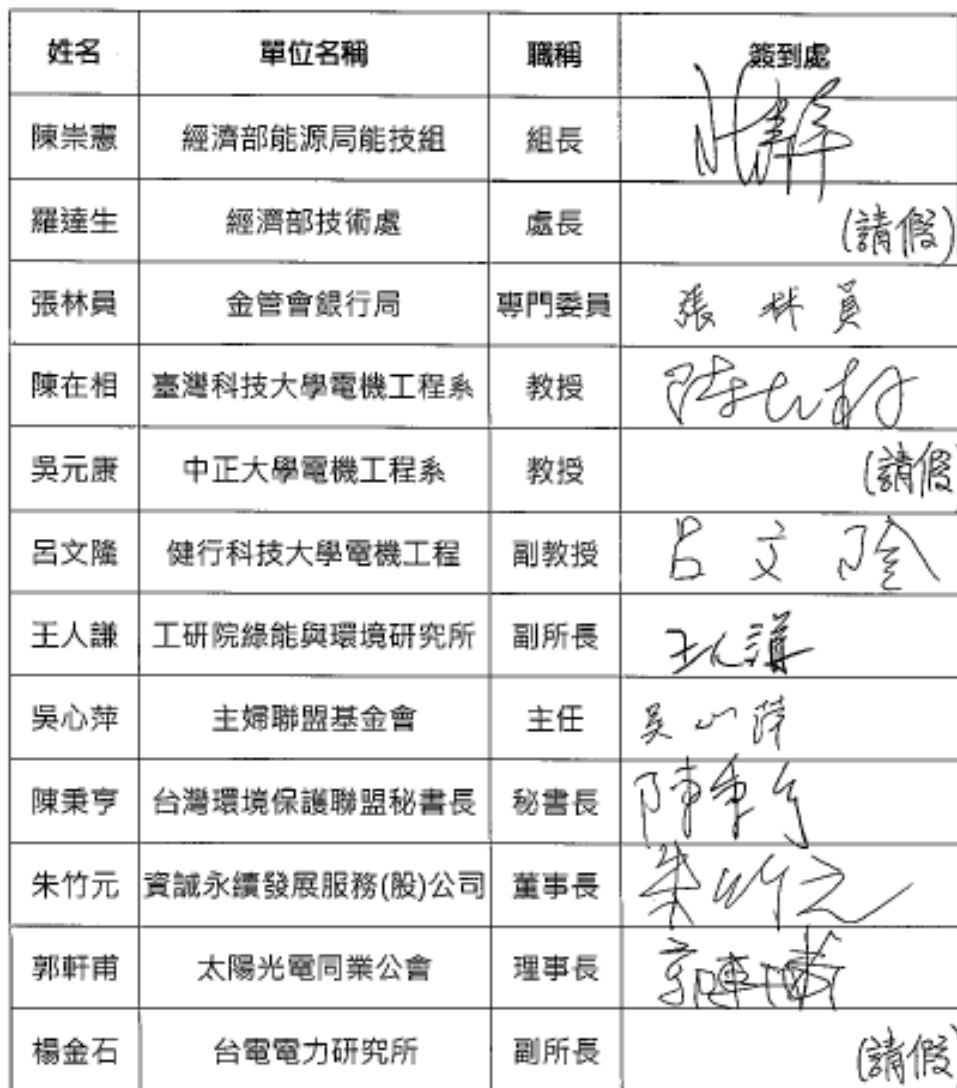 姓名 單位名稱 職稱 簽到處
陳崇憲 經濟部能源局能技組 組長
羅達生 經濟部技術處 處長 (請假)
張林員 金管會銀行局 專門委員 張林員
陳在相 臺灣科技大學電機工程系 教授 陳在相
吳元康 中正大學電機工程系 教授 (請假
呂文隆 健行科技大學電機工程 副教授 呂文隆
王人謙 工研院綠能與環境研究所 副所長 王人謙
吳心萍 主婦聯盟基金會 主任 吳心萍
陳秉亨 台灣環境保護聯盟秘書長 秘書長 陳秉亨
朱竹元 資誠永續發展服務(股)公司 董事長 朱竹元
郭軒甫 太陽光電同業公會 理事長
楊金石 台電電力研究所 副所長 (請假